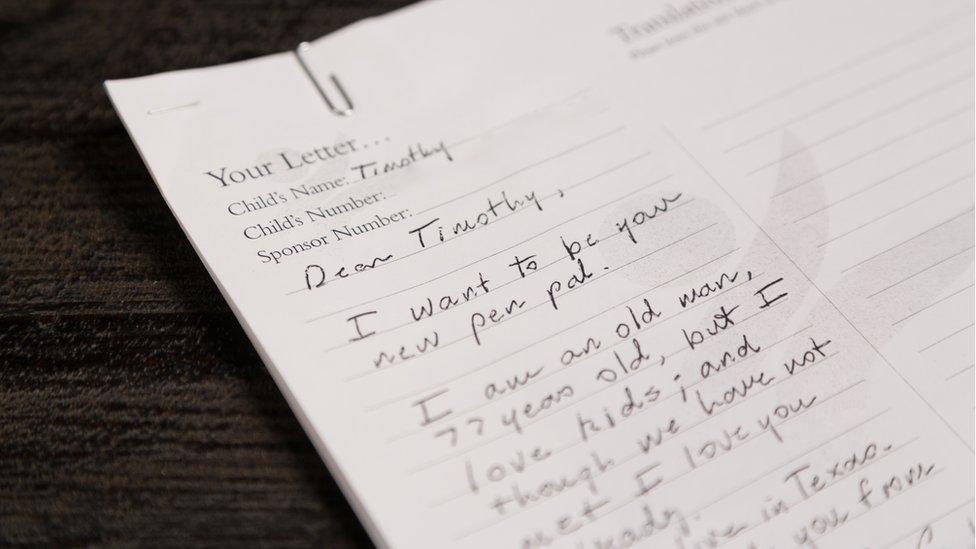 Your Letter...
Child's Name: Timothy
Child's Number:
Sponsor Number:
Dear Timothy,
I want to be your
new pen pal.
I am an old man,
77 years old, but I
love kids; and
though we have not
met I love you
in Texas.
you from